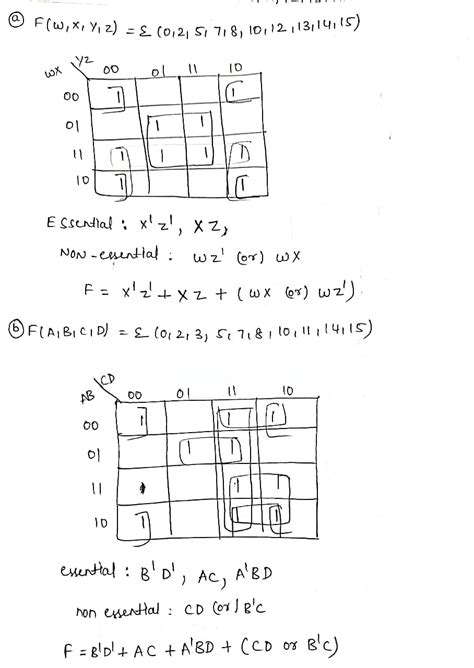 ⓐ F(W,X,Y,Z) = Σ (0,2,5,7,8,10,12,13,14,15)
WX YZ 00 01 11 10
00 1 1
01 1 1
11 1 1 1 1
10 1 1
Essential : X'Z', XZ,
Non-essential : WZ' (or) WX
F = X'Z' + XZ + (WX (or) WZ')
ⓑ F(A,B,C,D) = Σ (0,2,3,5,7,8,10,11,14,15)
AB CD 00 01 11 10
00 1 1 1
01 1 1
11 1 1
10 1 1 1
essential : B'D', AC, A'BD
non essential : CD (or) B'C
F = B'D' + AC + A'BD + (CD or B'C)